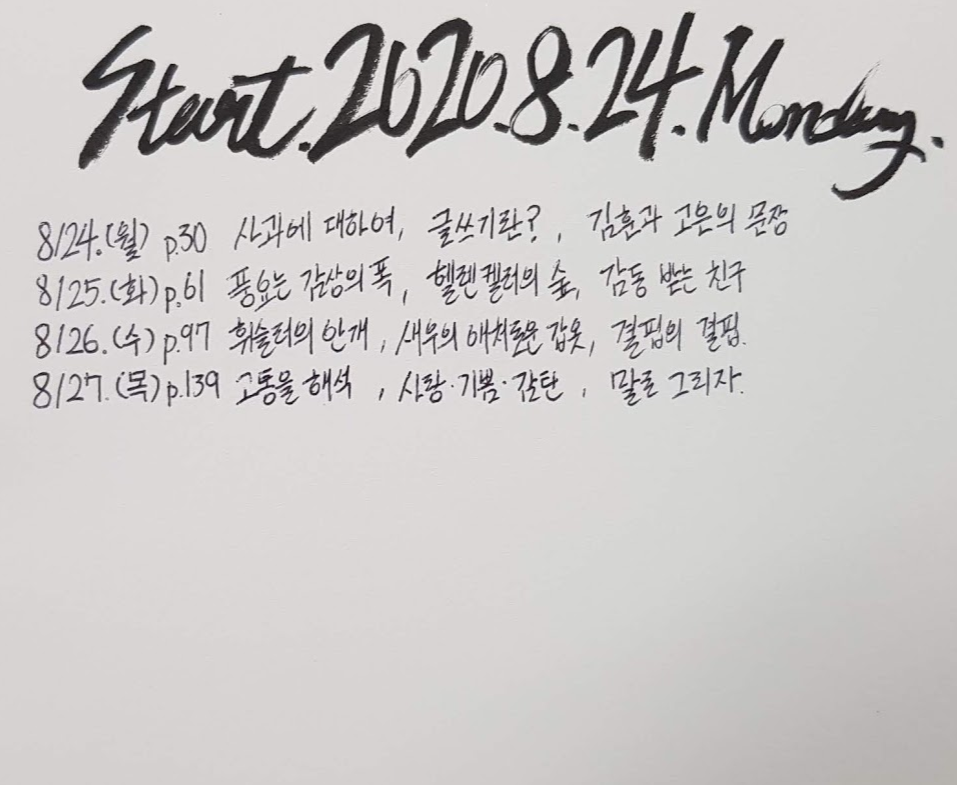 Start.2020.8.24.Monday.
8/24.(월) p.30 사과에 대하여, 글쓰기란?, 김훈과 고은의 문장
8/25.(화) p.61 풍요는 감상의 폭, 헬렌켈러의 숲, 감동 받는 친구
8/26.(수) p.97 휘슬러의 안개, 새우의 애처로운 갑옷, 결핍의 결핍.
8/27.(목) p.139 고통을 해석, 사랑·기쁨·감탄, 말로 그리자.